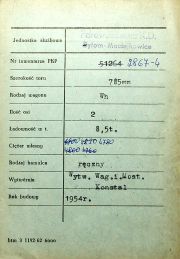 Jednostka służbowa
Bytom-Maciejkowice
Nr inwentarza PKP 51264 2867-4
Szerokość toru 785mm
Rodzaj wagonu Wh
Ilość osi 2
Ładowność w t. 8,5t.
Ciężar własny 4870 4780
4800 4760
Rodzaj hamulca ręczny
Wytwórnia Wytw. Wag.i.Most.
Konstal
Rok budowy 1954r.